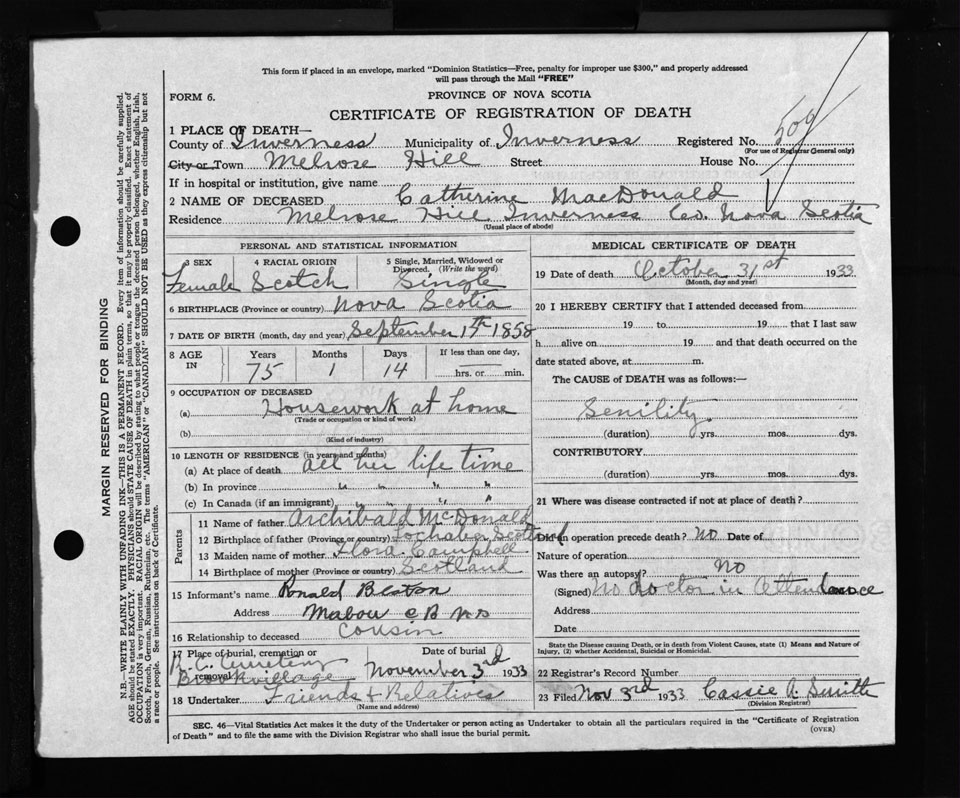 This form if placed in an envelope, marked "Dominion Statistics—Free, penalty for improper use $300," and properly addressed
will pass through the Mail "FREE"
FORM 6.
PROVINCE OF NOVA SCOTIA
CERTIFICATE OF REGISTRATION OF DEATH
1 PLACE OF DEATH—
County of Inverness Municipality of Inverness Registered No. 509
(For use of Registrar General only)
City or Town Melrose Hill Street House No.
If in hospital or institution, give name
2 NAME OF DECEASED Catherine MacDonald
Residence Melrose Hill Inverness Co. Nova Scotia
(Usual place of abode)
PERSONAL AND STATISTICAL INFORMATION
3 SEX 4 RACIAL ORIGIN 5 Single, Married, Widowed or Divorced. (Write the word)
Female Scotch Single
6 BIRTHPLACE (Province or country) Nova Scotia
7 DATE OF BIRTH (month, day and year) September 17th 1858
8 AGE IN Years Months Days If less than one day,
75 1 14 hrs. or min.
9 OCCUPATION OF DECEASED
(a) Housework at home
(Trade or occupation or kind of work)
(b)
(Kind of industry)
10 LENGTH OF RESIDENCE (in years and months)
(a) At place of death all her life time
(b) In province " " " "
(c) In Canada (if an immigrant) " " " "
Parents
11 Name of father Archibald McDonald
12 Birthplace of father (Province or country) Lochaber Scotland
13 Maiden name of mother Flora Campbell
14 Birthplace of mother (Province or country) Scotland
15 Informant's name Ronald Beaton
Address Mabou CB NS
16 Relationship to deceased Cousin
17 Place of burial, cremation or removal Date of burial
R.C. Cemetery
Brookvillage November 3rd 1933
18 Undertaker Friends & Relatives
(Name and address)
MEDICAL CERTIFICATE OF DEATH
19 Date of death October 31st 1933
(Month, day and year)
20 I HEREBY CERTIFY that I attended deceased from
19 to 19 that I last saw
h alive on 19 and that death occurred on the
date stated above, at m.
The CAUSE OF DEATH was as follows:—
Senility
(duration) yrs. mos. dys.
CONTRIBUTORY
(duration) yrs. mos. dys.
21 Where was disease contracted if not at place of death?
Did an operation precede death? No Date of
Nature of operation
Was there an autopsy? NO
(Signed) No doctor in Attendance
Address
Date
State the Disease causing Death, or in death from Violent Causes, state (1) Means and Nature of
Injury, (2) whether Accidental, Suicidal or Homicidal.
22 Registrar's Record Number
23 Filed Nov 3rd 1933 Cassie A. Smith
(Division Registrar)
SEC. 46—Vital Statistics Act makes it the duty of the Undertaker or person acting as Undertaker to obtain all the particulars required in the "Certificate of Registration
of Death" and to file the same with the Division Registrar who shall issue the burial permit.
(OVER)
MARGIN RESERVED FOR BINDING
N.B.—WRITE PLAINLY WITH UNFADING INK—THIS IS A PERMANENT RECORD. Every item of information should be carefully supplied.
AGE should be stated EXACTLY. PHYSICIANS should STATE CAUSE OF DEATH in plain terms, so that it may be properly classified. Exact statement of
OCCUPATION is very important. RACIAL ORIGIN will be described by stating to what people or tongue the deceased person belonged, whether English, Irish,
Scotch, French, German, Russian, Ruthenian, etc. The terms "AMERICAN" or "CANADIAN" SHOULD NOT BE USED as they express citizenship but not
a race or people. See instructions on back of Certificate.